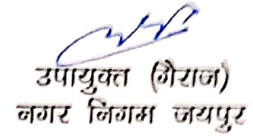 उपायुक्त (गैराज)
नगर निगम जयपुर